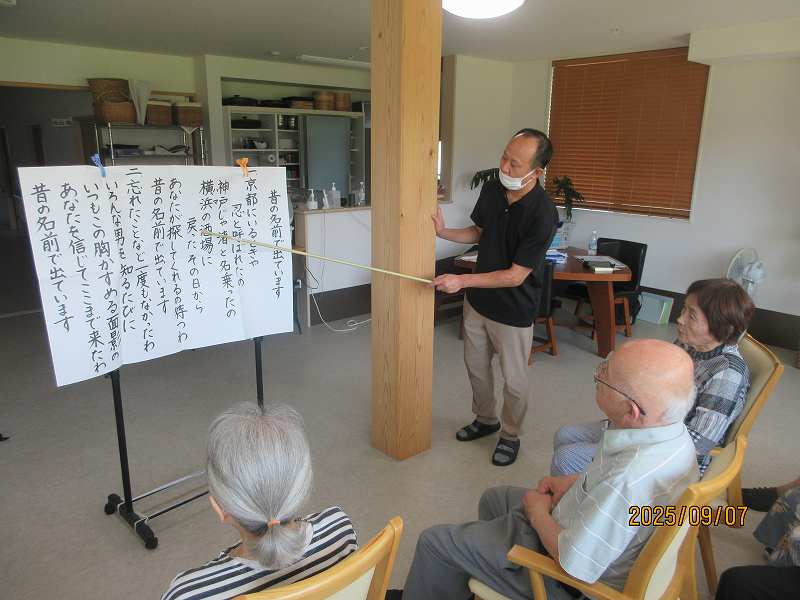 昔の名前で出ています
一京都にいるときゃ
忍と呼ばれたの
神戸じゃ渚と名乗ったの
横浜の酒場に
戻ったその日から
あなたが探してくれるの待つわ
昔の名前で出ています
二忘れたことなど一度もなかったわ
いろんな男を知るたびに
いつもこの胸かすめる面影の
あなたを信じてここまで来たわ
昔の名前で出ています
2025/09/07